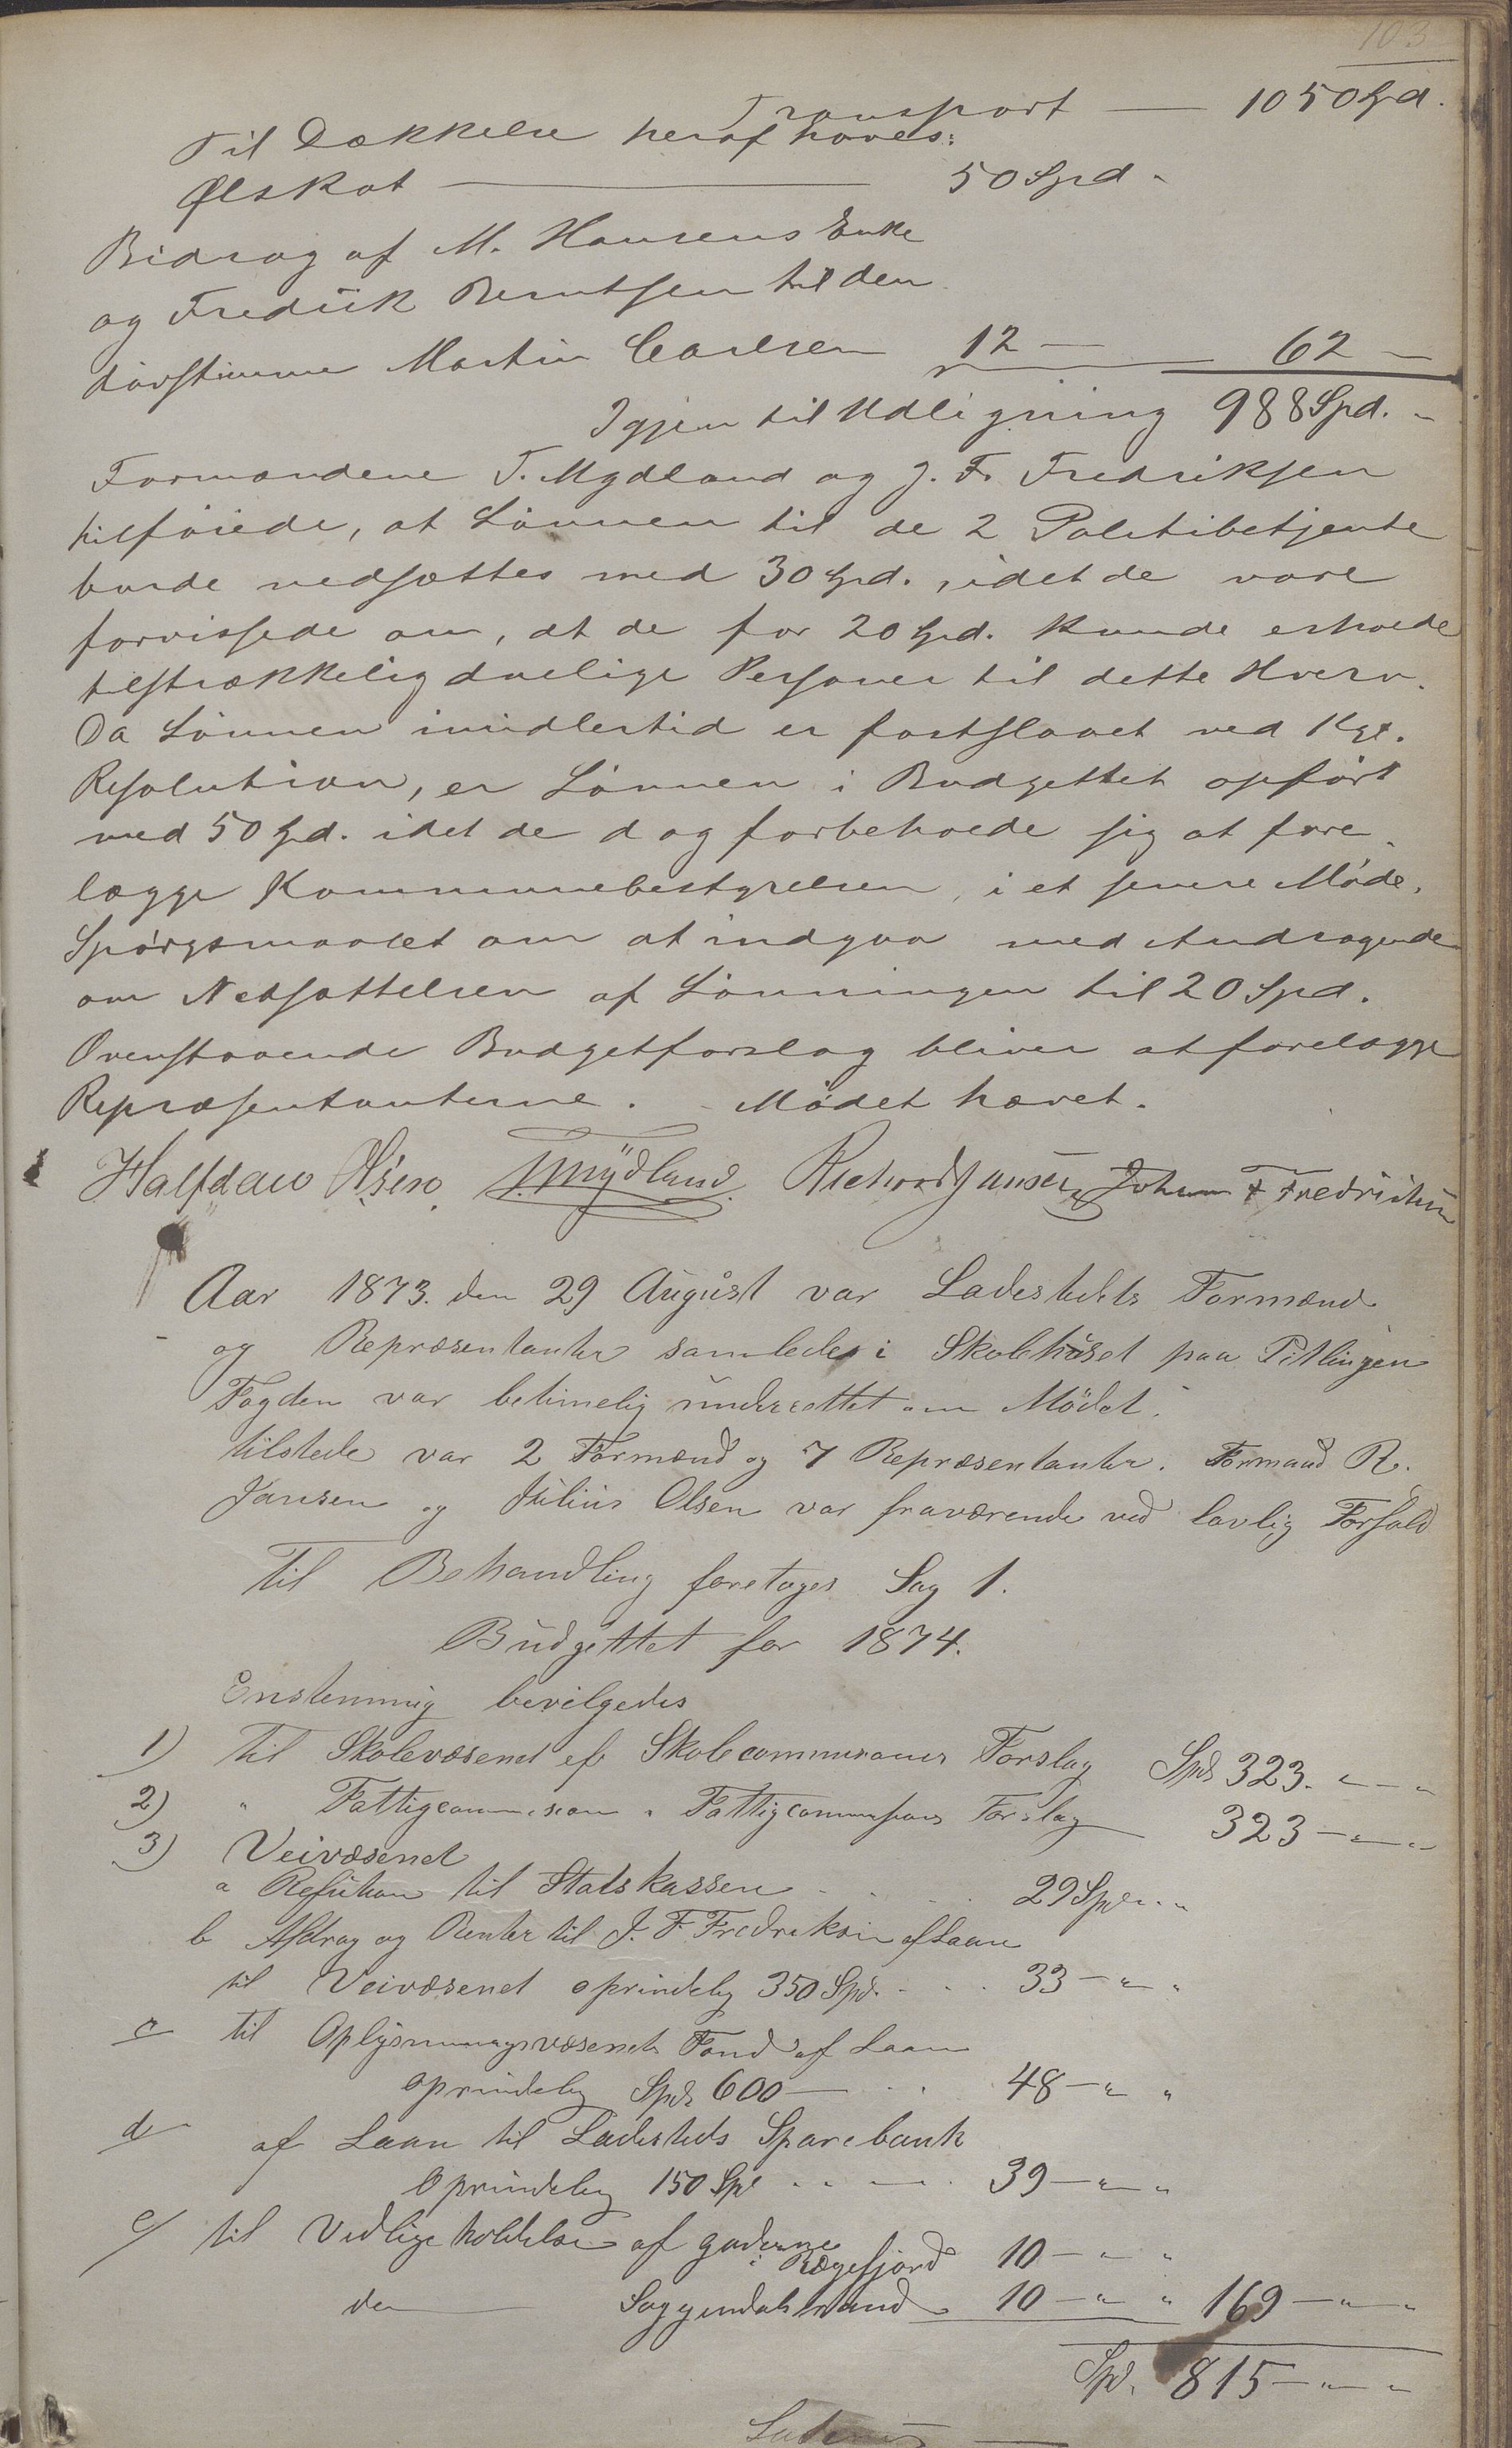 103
Transport — 1050 Spd.
Til Dækkelse heraf haves:
Ølskat — 50 Spd.
Bidrag af M. Hansens Enke
og Fredrik Berntsen til den
døvstumme Martin Carlsen 12 — 62 —
Igjen til Udligning 988 Spd. "
Formændene T. Mydland og J. F. Fredriksen
tilføiede, at Lønnen til de 2 Politibetjente
burde nedsættes med 30 Spd., idet de vare
forvissede om, at de for 20 Spd. kunde erholde
tilstrækkelig duelige Personer til dette Hverv.
Da Lønnen imidlertid er fastslaaet ved Kgl.
Resolution, er Lønnen i Budgettet opført
med 50 Spd. idet de dog forbeholde sig at fore
lægge Kommunebestyrelsen, i et senere Møde,
Spørgsmaalet om at indgaa med Andragende
om Netsættelsen af Lønningen til 20 Spd.
Ovenstaaende Budgetforslag bliver at forelægge
Repræsentanterne. - Mødet hævet.
Halfdan Olsen. T. Mydland. Richard Jansen Johan F Fredriksen
Aar 1873. den 29 August var Ladestedets Formænd
og Repræsentanter samledes i Skolehuset paa Pitlingen
Fogden var betimelig underrettet om Mødet.
tilstede var 2 Formænd og 7 Repræsentanter. Formand R.
Jansen og Julius Olsen var fraværende ved lovlig Forfald
Til Behandling foretoges Sag 1.
Budgettet for 1874.
Enstemmig bevilgedes
1) til Skolevæsenet ef Skolecommisionens Forslag Spd 323. " — "
2) " Fattigcommision " Fattigcommisions Forslag 323 — " — "
3) Veivæsenet
a Refusion til Statskassen . . . 29 Spd " "
b Afdrag og Renter til J. F. Fredriksen af Laan
til Veivæsenet oprindelig 350 Spd. . . 33 — " "
c til Oplysningsvæsenets Fond af Laan
oprindelig Spd 600 — . . 48 — " "
d af Laan til Ladesteds Sparebank
oprindelig 150 Spd . . — . 39 — " "
e/ til Vedligeholdelse af gaderne
i Rægefjord 10 — " "
do — Soggendalstrand 10 — " " 169 — " "
Spd. 815 — " "